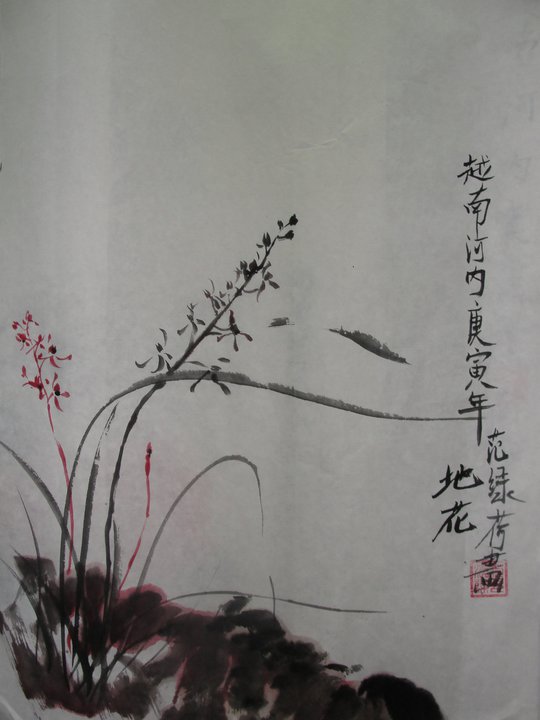 越南河内庚寅年
范绿荷畫
地花